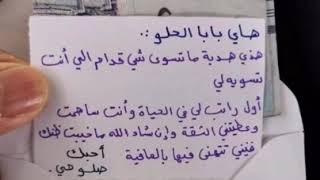 هاي بابا الحلو ..
هذي هدية ما تسوى شي قدام الي أنت
تسويه لي
أول راتب لي في الحياة وأنت ساهمت
وعطيتني الثقة وإن شاء الله ما خيبت ظنك
فيني تتهنى فيها بالعافية
أحبك